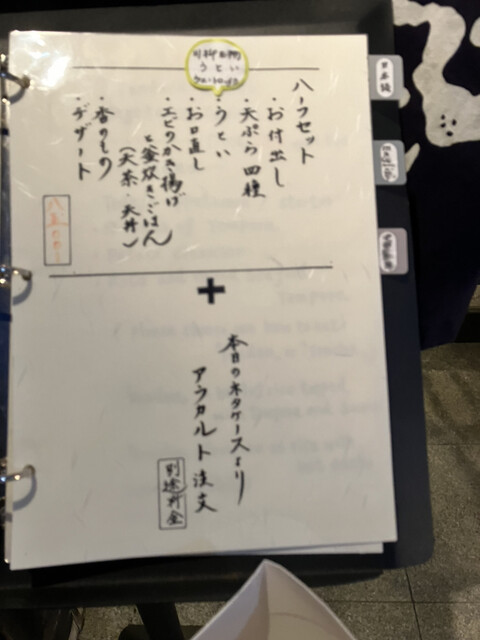 ハーフセット
・お付出し
・天ぷら四種
・うとい
・お口直し
・エビのかき揚げ
と釜炊きごはん
（天茶・天丼）
・香のもの
・デザート
+
本日のネタケースより
アラカルト注文
別途料金
日本語